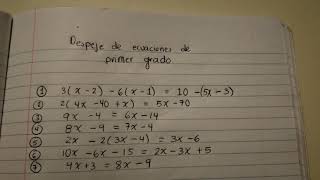 Despeje de ecuaciones de
primer grado.
① 3(x-2) -6(x-1) = 10 -(5x-3)
② 2(4x -40 +x) = 5x -70
③ 9x -4 = 6x -14
④ 8x -9 = 7x -4
⑤ 2x -2(3x -4) = 3x -6
⑥ 10x -6x -15 = 2x -3x +5
⑦ 4x+3 = 8x -9